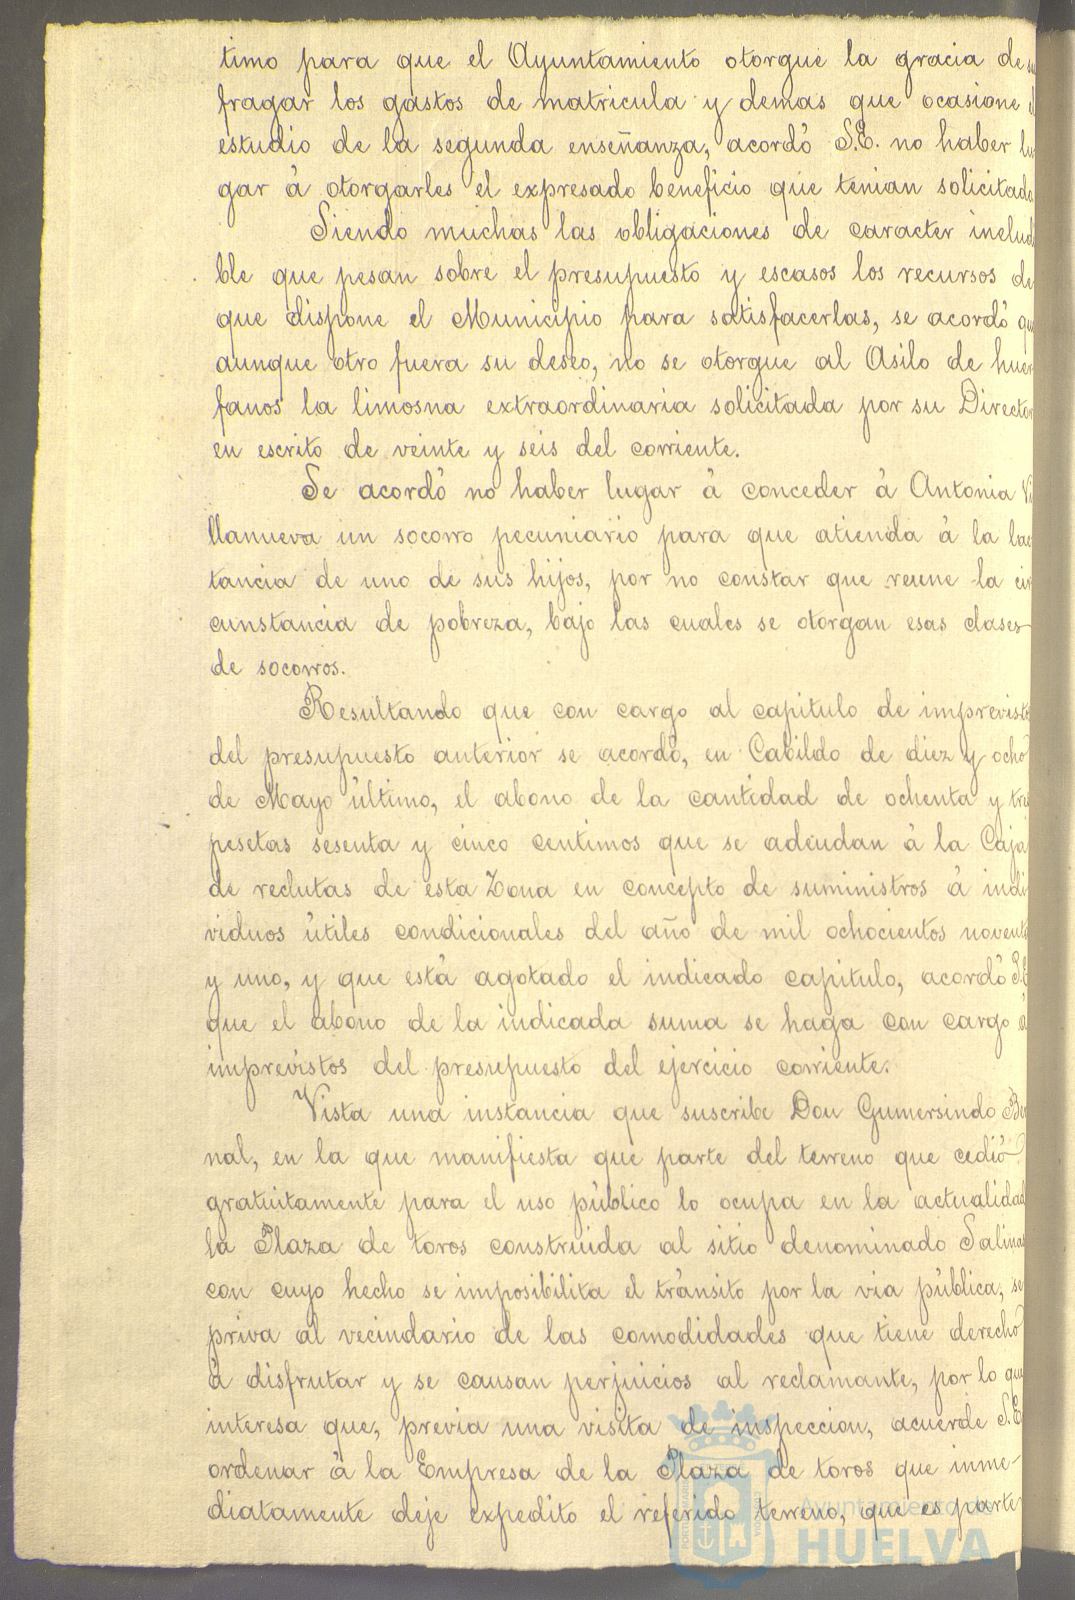 timo para que el Ayuntamiento otorgue la gracia de su
fragar los gastos de matricula y demas que ocasione el
estudio de la segunda enseñanza, acordó S.E. no haber lu
gar á otorgarles el expresado beneficio que tenian solicitado
Siendo muchas las obligaciones de caracter inelud
ble que pesan sobre el presupuesto y escasos los recursos de
que dispone el Municipio para satisfacerlas, se acordó que
aunque otro fuera su deseo, no se otorgue al Asilo de huer
fanos la limosna extraordinaria solicitada por su Director
en escrito de veinte y seis del corriente.
Se acordó no haber lugar á conceder á Antonia Vi
llanueva un socorro pecuniario para que atienda á la lac
tancia de uno de sus hijos, por no constar que reune la cir
cunstancia de pobreza, bajo las cuales se otorgan esas clases
de socorros.
Resultando que con cargo al capitulo de imprevistos
del presupuesto anterior se acordó, en Cabildo de diez y ocho
de Mayo último, el abono de la cantidad de ochenta y tres
pesetas sesenta y cinco centimos que se adeudan á la Caja
de reclutas de esta Zona en concepto de suministros á indi
viduos útiles condicionales del año de mil ochocientos noventa
y uno, y que está agotado el indicado capitulo, acordó S.E.
que el abono de la indicada suma se haga con cargo á
imprevistos del presupuesto del ejercicio corriente.
Vista una instancia que suscribe Don Gumersindo Ber
nal, en la que manifiesta que parte del terreno que cedió
gratuitamente para el uso público lo ocupa en la actualidad
la Plaza de toros construida al sitio denominado Salinas
con cuyo hecho se imposibilita el tránsito por la via pública, se
priva al vecindario de las comodidades que tiene derecho
á disfrutar y se causan perjuicios al reclamante, por lo que
interesa que, previa una visita de inspeccion, acuerde S.E.
ordenar á la Empresa de la Plaza de toros que inme-
diatamente deje expedito el referido terreno, que es parte
Ayuntamiento de
HUELVA